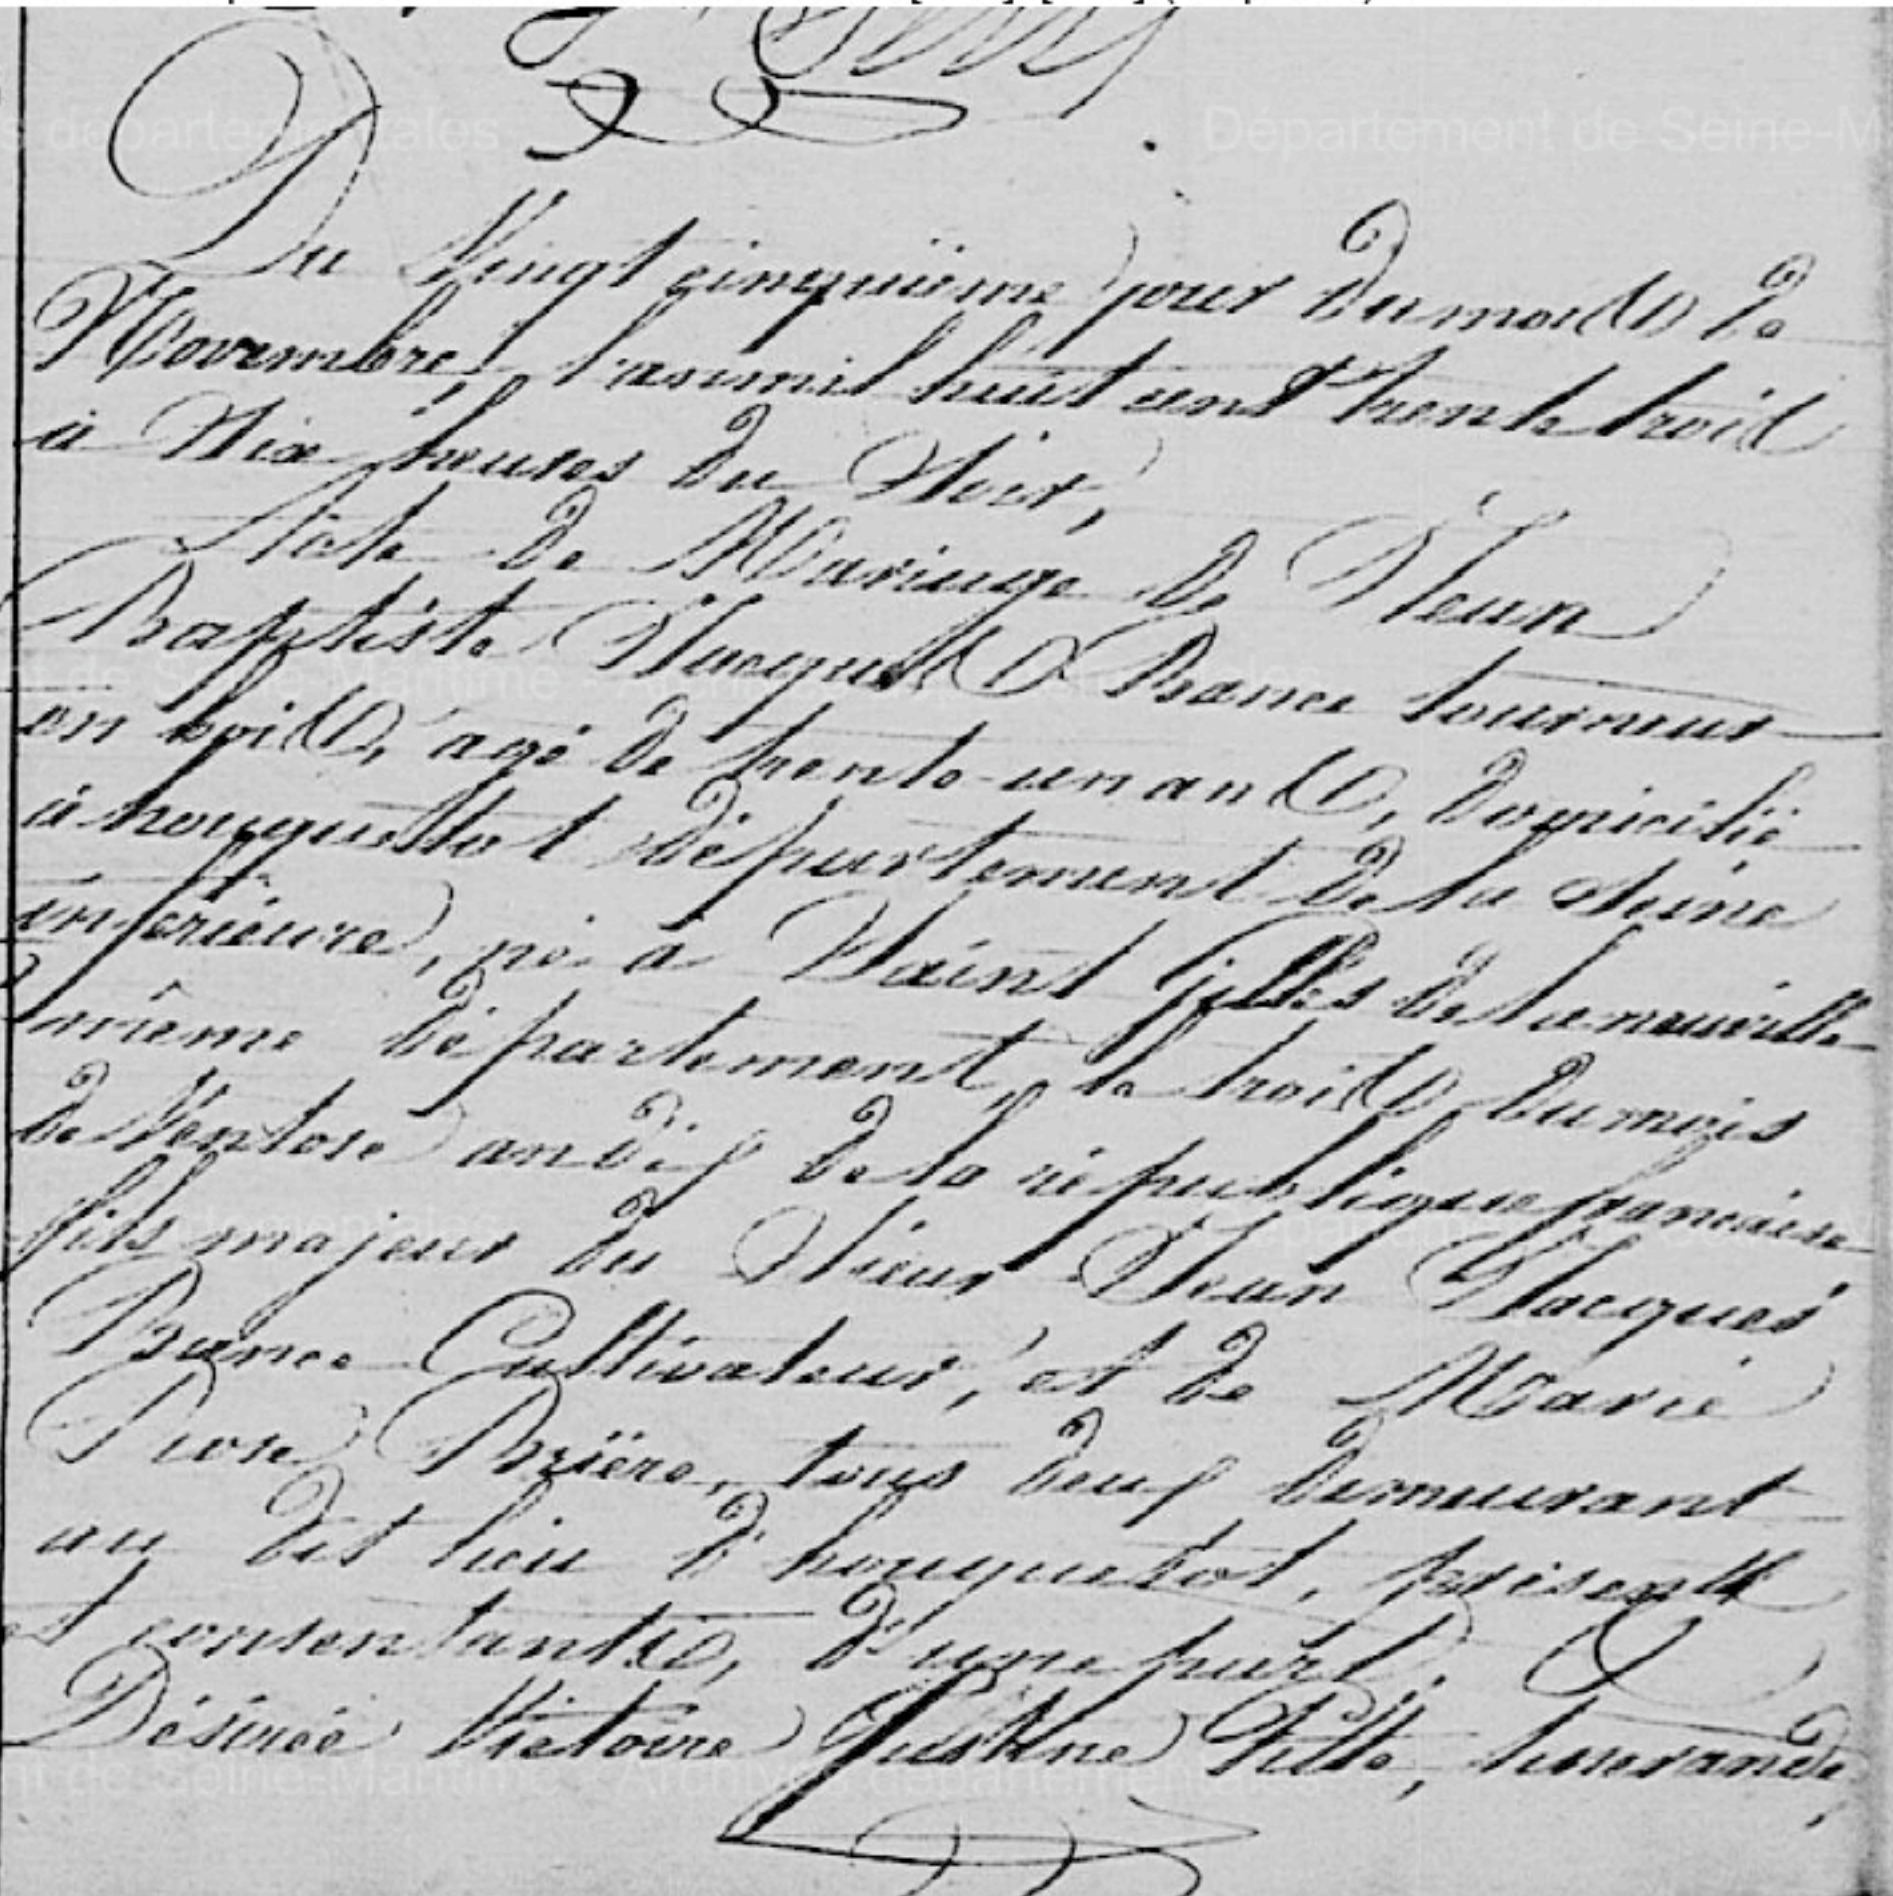 Du Vingt cinquième jour du mois de
Novembre, l'an mil huit cent trente trois
à Six heures du Soir,
Acte de Mariage de Jean
Baptiste Jacques Brance tourneur
en bois, agé de trente-un ans, domicilié
à houquetot département de la Seine
inférieure, né à Saint Gilles de la neuville
même département, le trois du mois
de Ventose an dix de la république francaise
fils majeur du Sieur Jean Jacques
Brance Cultivateur, et de Marie
Rose Brière, tous deux demeurant
au dit lieu d'houquetot, présents
et consentants, d'une part.
Désirée Victoire Justine tisserande,